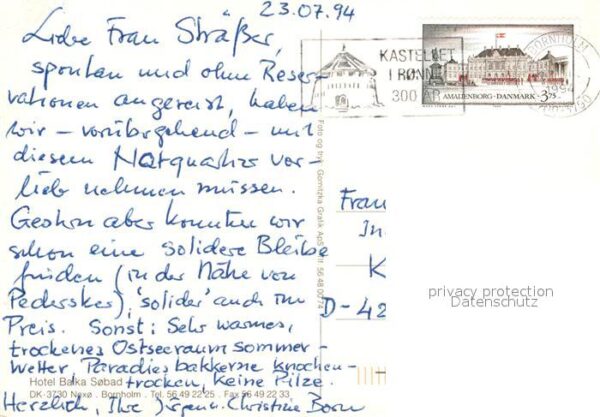 23.07.94
Liebe Frau Sträßer,
spontan und ohne Reser-
vationen angereist, haben
wir – vorübergehend – mit
diesem Notquartier vor-
lieb nehmen müssen.
Gestern aber konnten wir
schon eine solidere Bleibe
finden (in der Nähe von
Pedersker), 'solider' auch im
Preis. Sonst: Sehr warmes,
trockenes Ostseeraumsommer-
wetter, Paradies knochen-
trocken, keine Pilze.
Herzlich, Ihre Christine Born
Hotel Balka Søbad
DK-3730 Nexø . Bornholm . Tel. 56 49 22 25 . Fax 56 49 22 33
Foto og tryk: Gornitzka Grafik ApS
KASTELLET
I RØNNE
300 ÅR
BORNHOLM
AMALIENBORG · DANMARK 3.75
Frau
In
K
D-42
privacy protection
Datenschutz